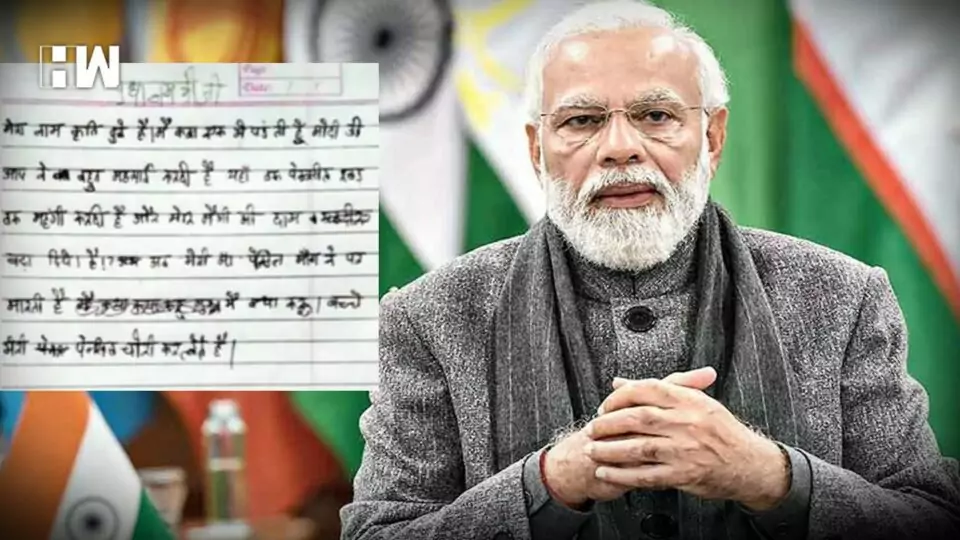 HW
प्रधानमंत्री जी
Date: / /
मेरा नाम कृति दुबे है। मै कक्षा एक में पढ़ती हूँ मोदी जी
आप ने बहुत महगाई करदी है यहाँ तक पेन्सील रबड़
तक महंगी करदी है और मेरी मैगी की दाम भी
बढ़ा दिये। है। अब मेरी मां पेन्सिल माँगने पर
मारती है मैं क्या करू। बच्चे
मेरी पेन्सिल चोरी कर लेते है।